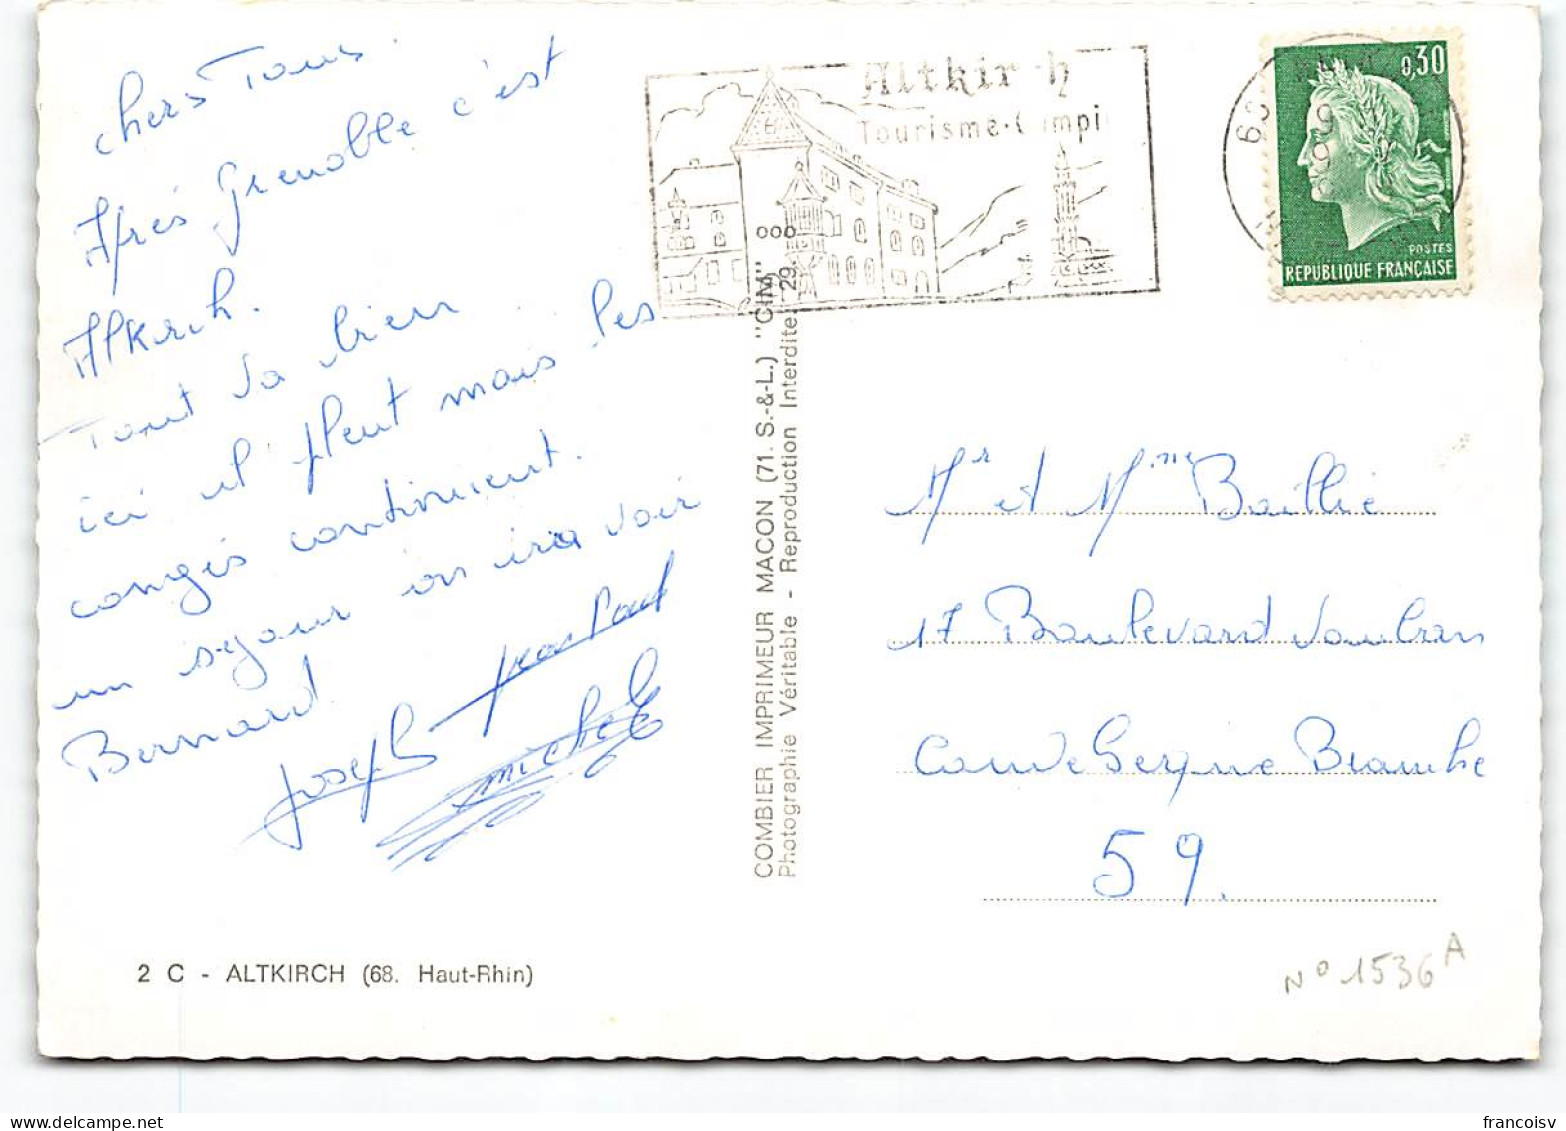 chers Tous.
Après Grenoble c'est
Altkirch.
Tout va bien
ici il pleut mais les
congés continuent.
un séjour on ira voir
Bernard
Joseph Jean Paul
michel
2 C - ALTKIRCH (68. Haut-Rhin)
COMBIER IMPRIMEUR MACON (71. S.-&-L.) "CIM"
Photographie Véritable - Reproduction Interdite
Altkirch
Tourisme-Campi
0,30
POSTES
REPUBLIQUE FRANÇAISE
Mr et Mme Baillie
17 Boulevard Vauban
Coudekerque Branche
59.
N° 1536 A
francoisv